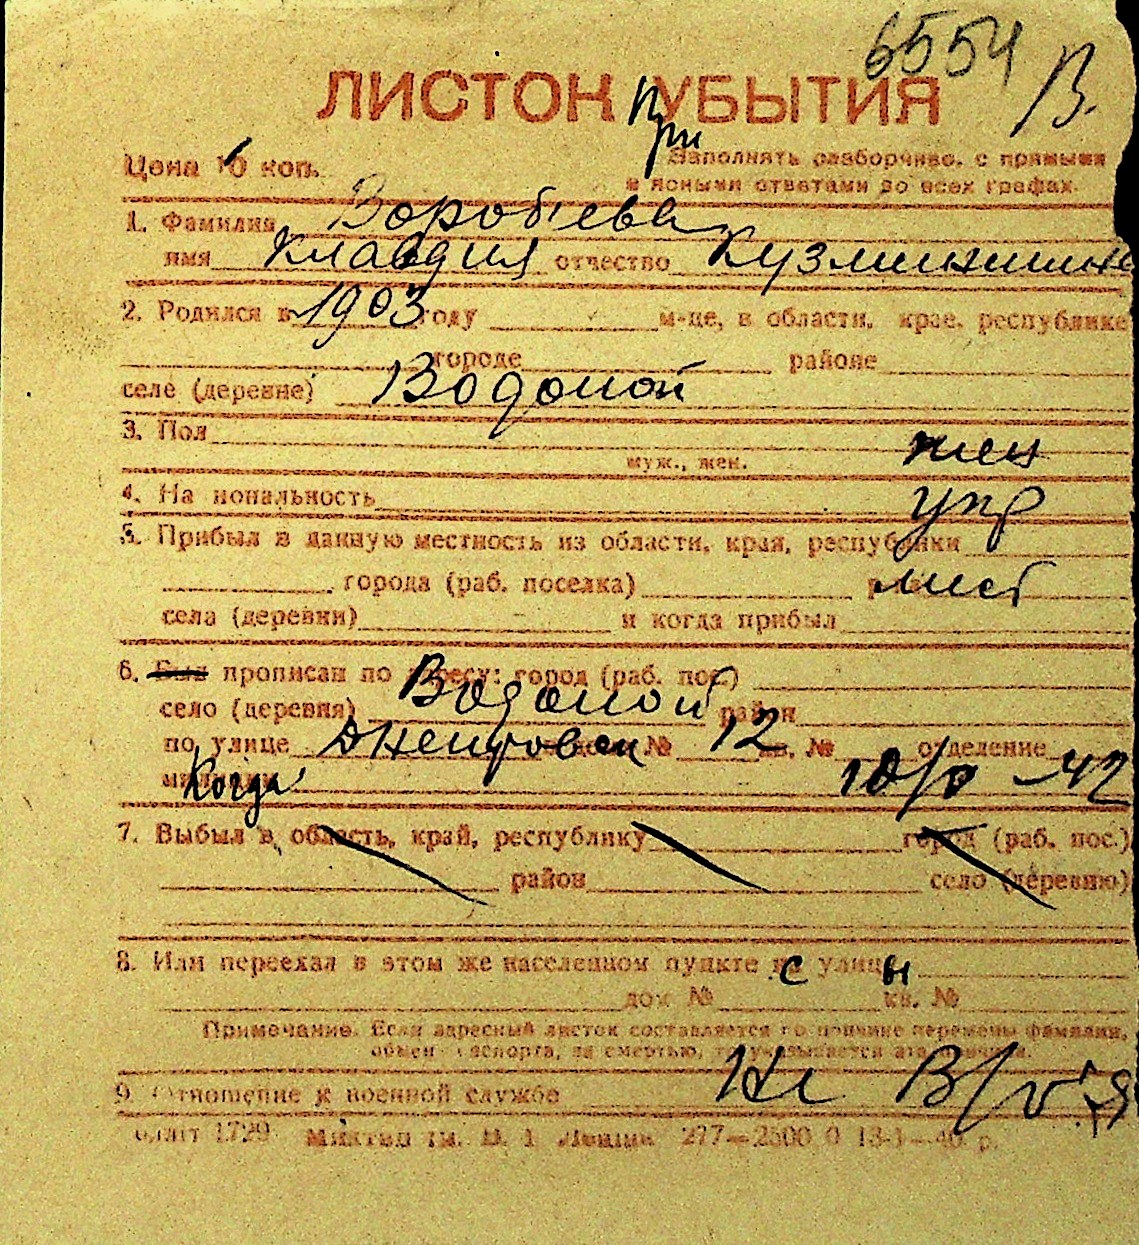 6554
В.
ЛИСТОК При УБЫТИЯ
Цена 10 коп.
Заполнять разборчиво, с прямыми
и ясными ответами во всех графах.
1. Фамилия Воробьева
имя Клавдия отчество
2. Родился в 1903 году м-це, в области, крае, республике
городе районе
селе (деревне) Водопой
3. Пол жен
муж., жен.
4. На иональность укр
5. Прибыл в данную местность из области, края, республики
города (раб. поселка) мест
села (деревни) и когда прибыл
6. Был прописан по адресу: город (раб. пос.)
село (деревня) Водопой район
по улице дом № 12 кв. № отделение
милиции Когда 10/V -42
7. Выбыл в область, край, республику город (раб. пос.)
район село (деревню)
8. Или переехал в этом же населенном пункте с улицы
дом № кв. №
Примечание. Если адресный листок составляется по причине перемены фамилии,
обмена паспорта, за смертью, то указывается эта причина.
9. Отношение к военной службе Не
1729 тип. № 1 277—2500 0 13-1—40 р.